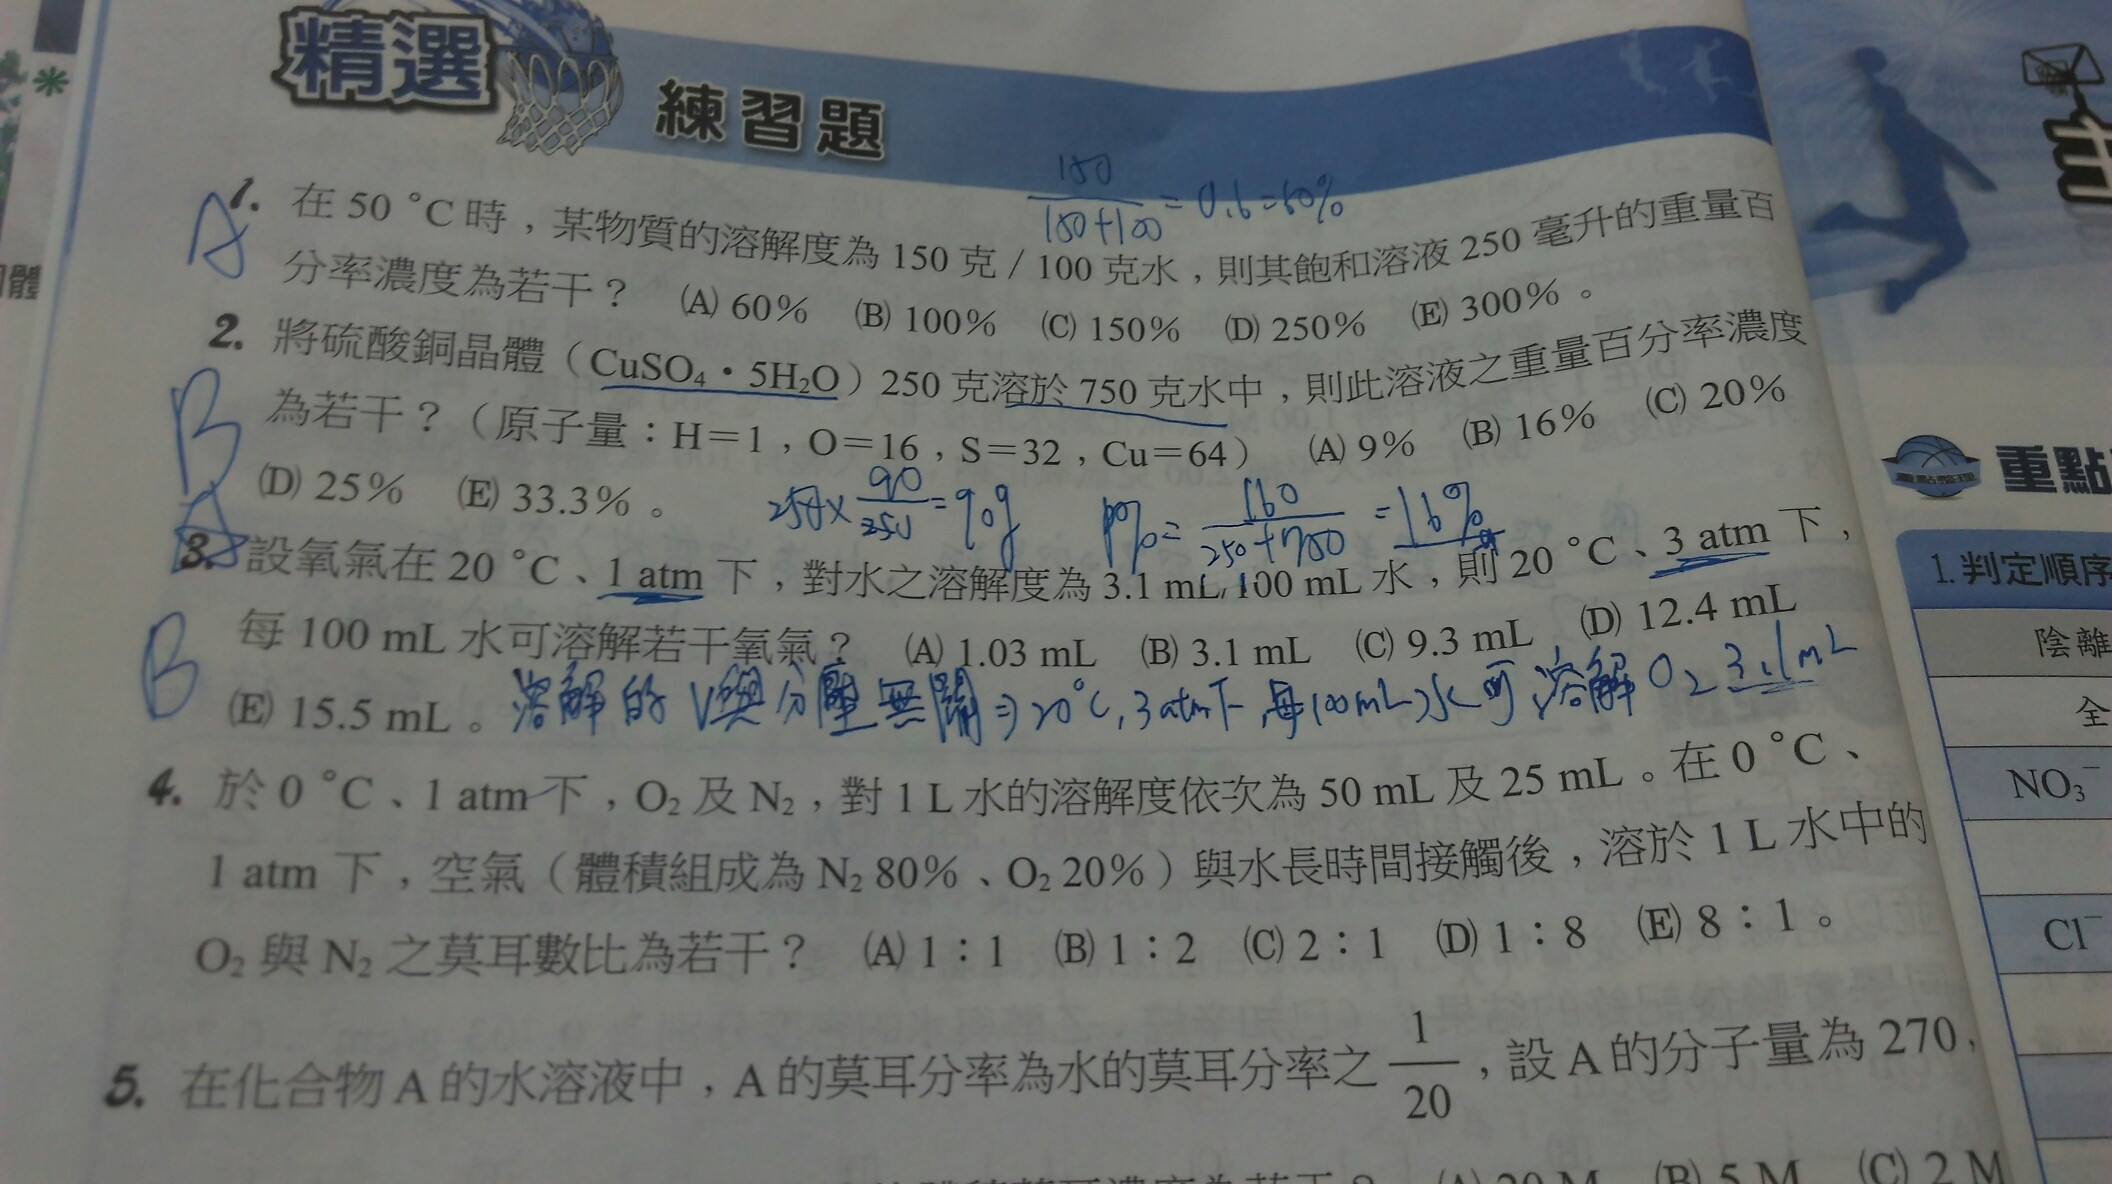 精選
練習題
150
150+100 = 0.6 = 60%
A
1. 在 50 °C 時，某物質的溶解度為 150 克 / 100 克水，則其飽和溶液 250 毫升的重量百
分率濃度為若干？ (A) 60% (B) 100% (C) 150% (D) 250% (E) 300%。
2. 將硫酸銅晶體（CuSO₄・5H₂O）250 克溶於 750 克水中，則此溶液之重量百分率濃度
B
為若干？（原子量：H＝1，O＝16，S＝32，Cu＝64） (A) 9% (B) 16% (C) 20%
(D) 25% (E) 33.3%。
250× 90/250 = 90g P%= 160/250+750 = 16%
3. 設氧氣在 20 °C、1 atm 下，對水之溶解度為 3.1 mL/100 mL 水，則 20 °C、3 atm 下，
B
每 100 mL 水可溶解若干氧氣？ (A) 1.03 mL (B) 3.1 mL (C) 9.3 mL (D) 12.4 mL
(E) 15.5 mL。
溶解的V與分壓無關⇒20°C, 3 atm下,每100mL水可溶解O₂ 3.1mL
4. 於 0 °C、1 atm 下，O₂ 及 N₂，對 1 L 水的溶解度依次為 50 mL 及 25 mL。在 0 °C、
1 atm 下，空氣（體積組成為 N₂ 80%、O₂ 20%）與水長時間接觸後，溶於 1 L 水中的
O₂ 與 N₂ 之莫耳數比為若干？ (A) 1：1 (B) 1：2 (C) 2：1 (D) 1：8 (E) 8：1。
5. 在化合物 A 的水溶液中，A 的莫耳分率為水的莫耳分率之 1/20，設 A 的分子量為 270，
(A) 20 M (B) 5 M (C) 2 M
重點
重點整理
1.判定順序
陰離
全
NO₃⁻
Cl⁻
體